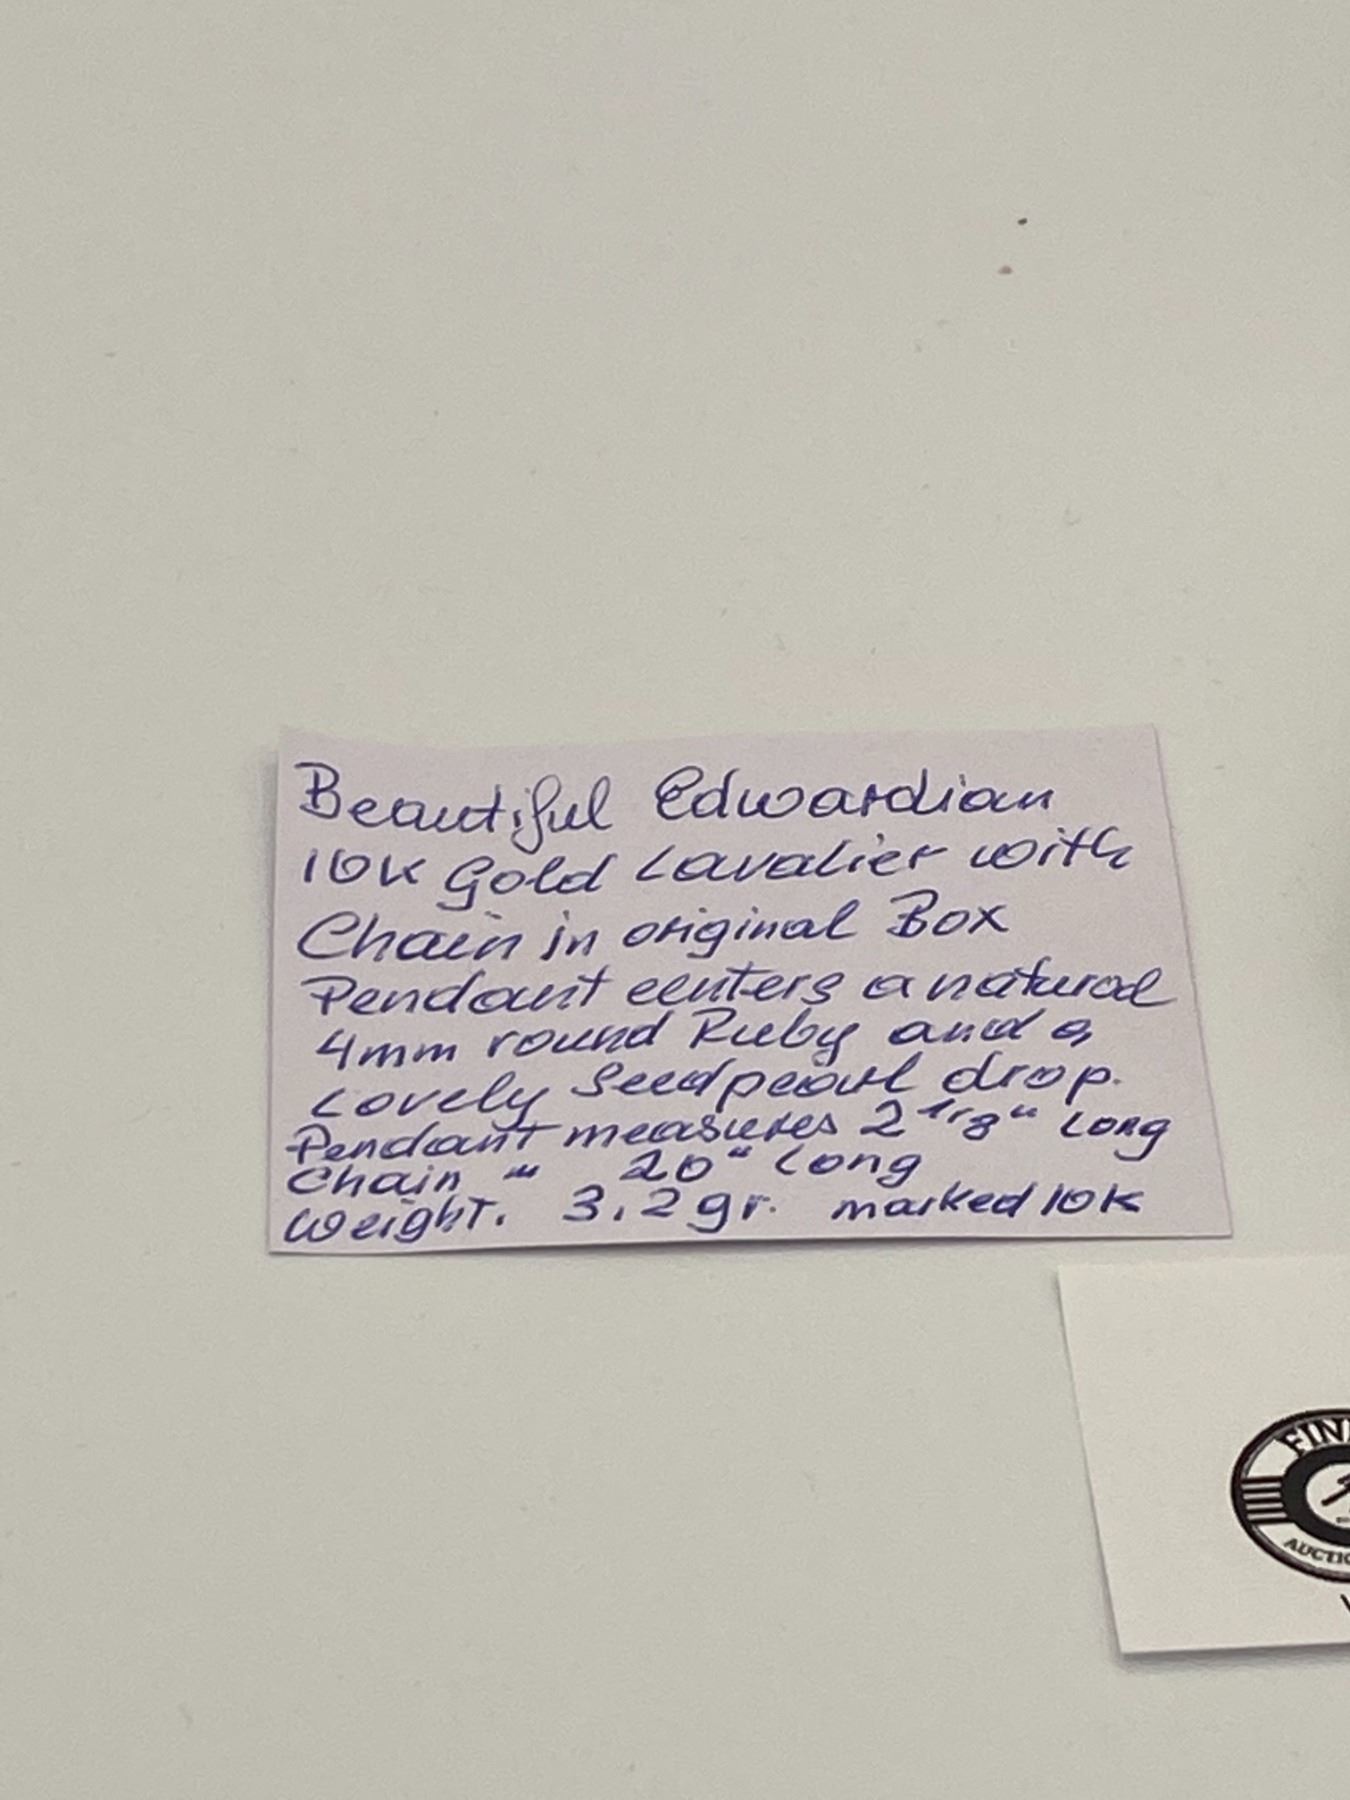 Beautiful Edwardian
10K Gold Lavalier with
Chain in original Box
Pendant centers a natural
4mm round Ruby and a
Lovely Seedpearl drop.
Pendant measures 2 1/8" Long
Chain " 20" Long
Weight. 3.2 gr. marked 10K